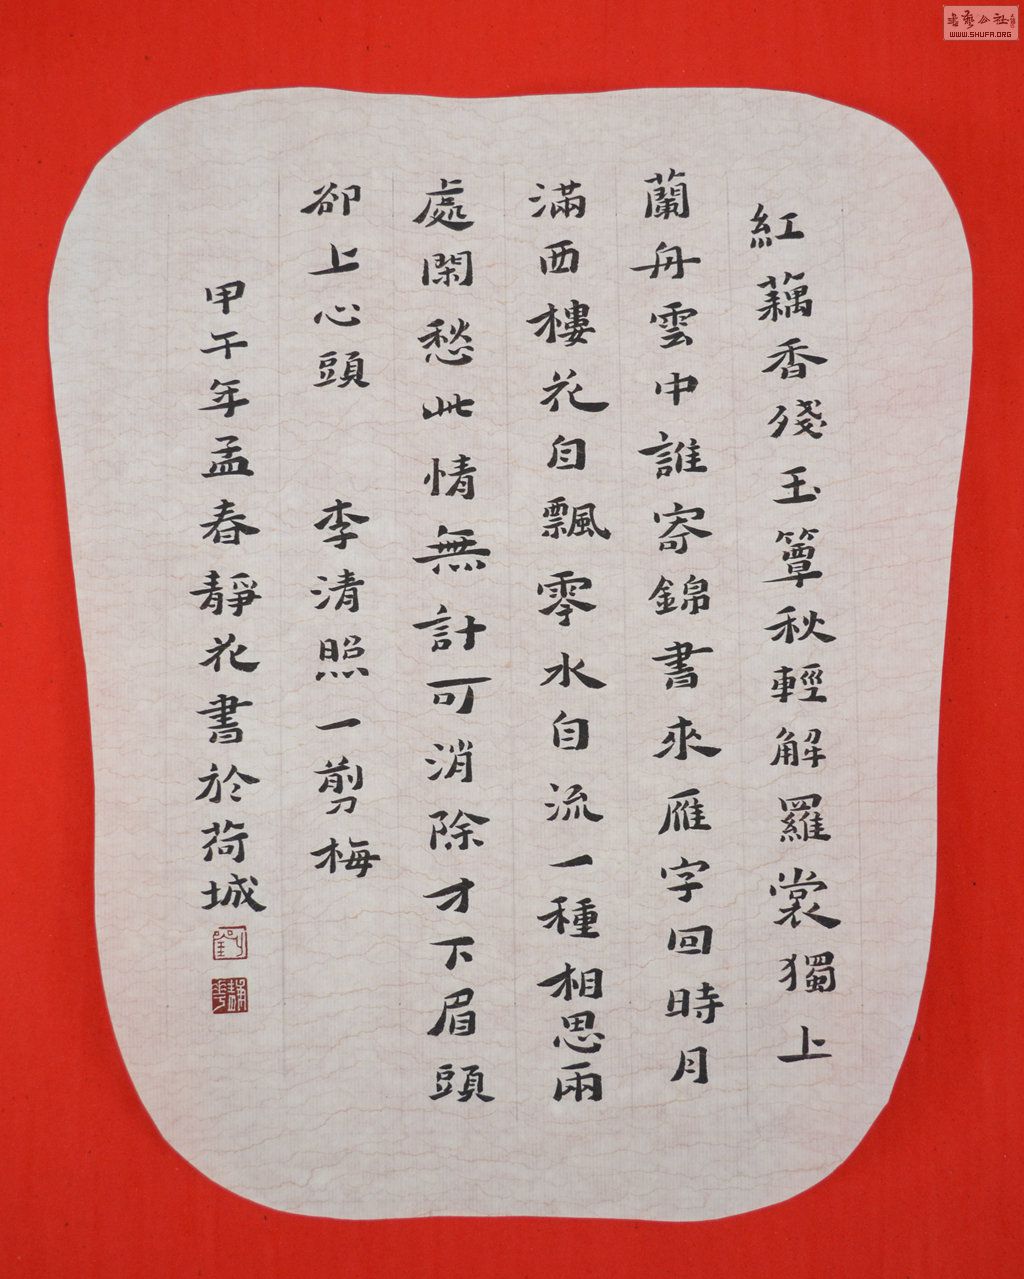 紅藕香殘玉簟秋輕解羅裳獨上
蘭舟雲中誰寄錦書來雁字回時月
滿西樓花自飄零水自流一種相思兩
處閑愁此情無計可消除才下眉頭
卻上心頭 李清照一剪梅
甲午年孟春靜花書於荷城
書藝公社
WWW.SHUFA.ORG